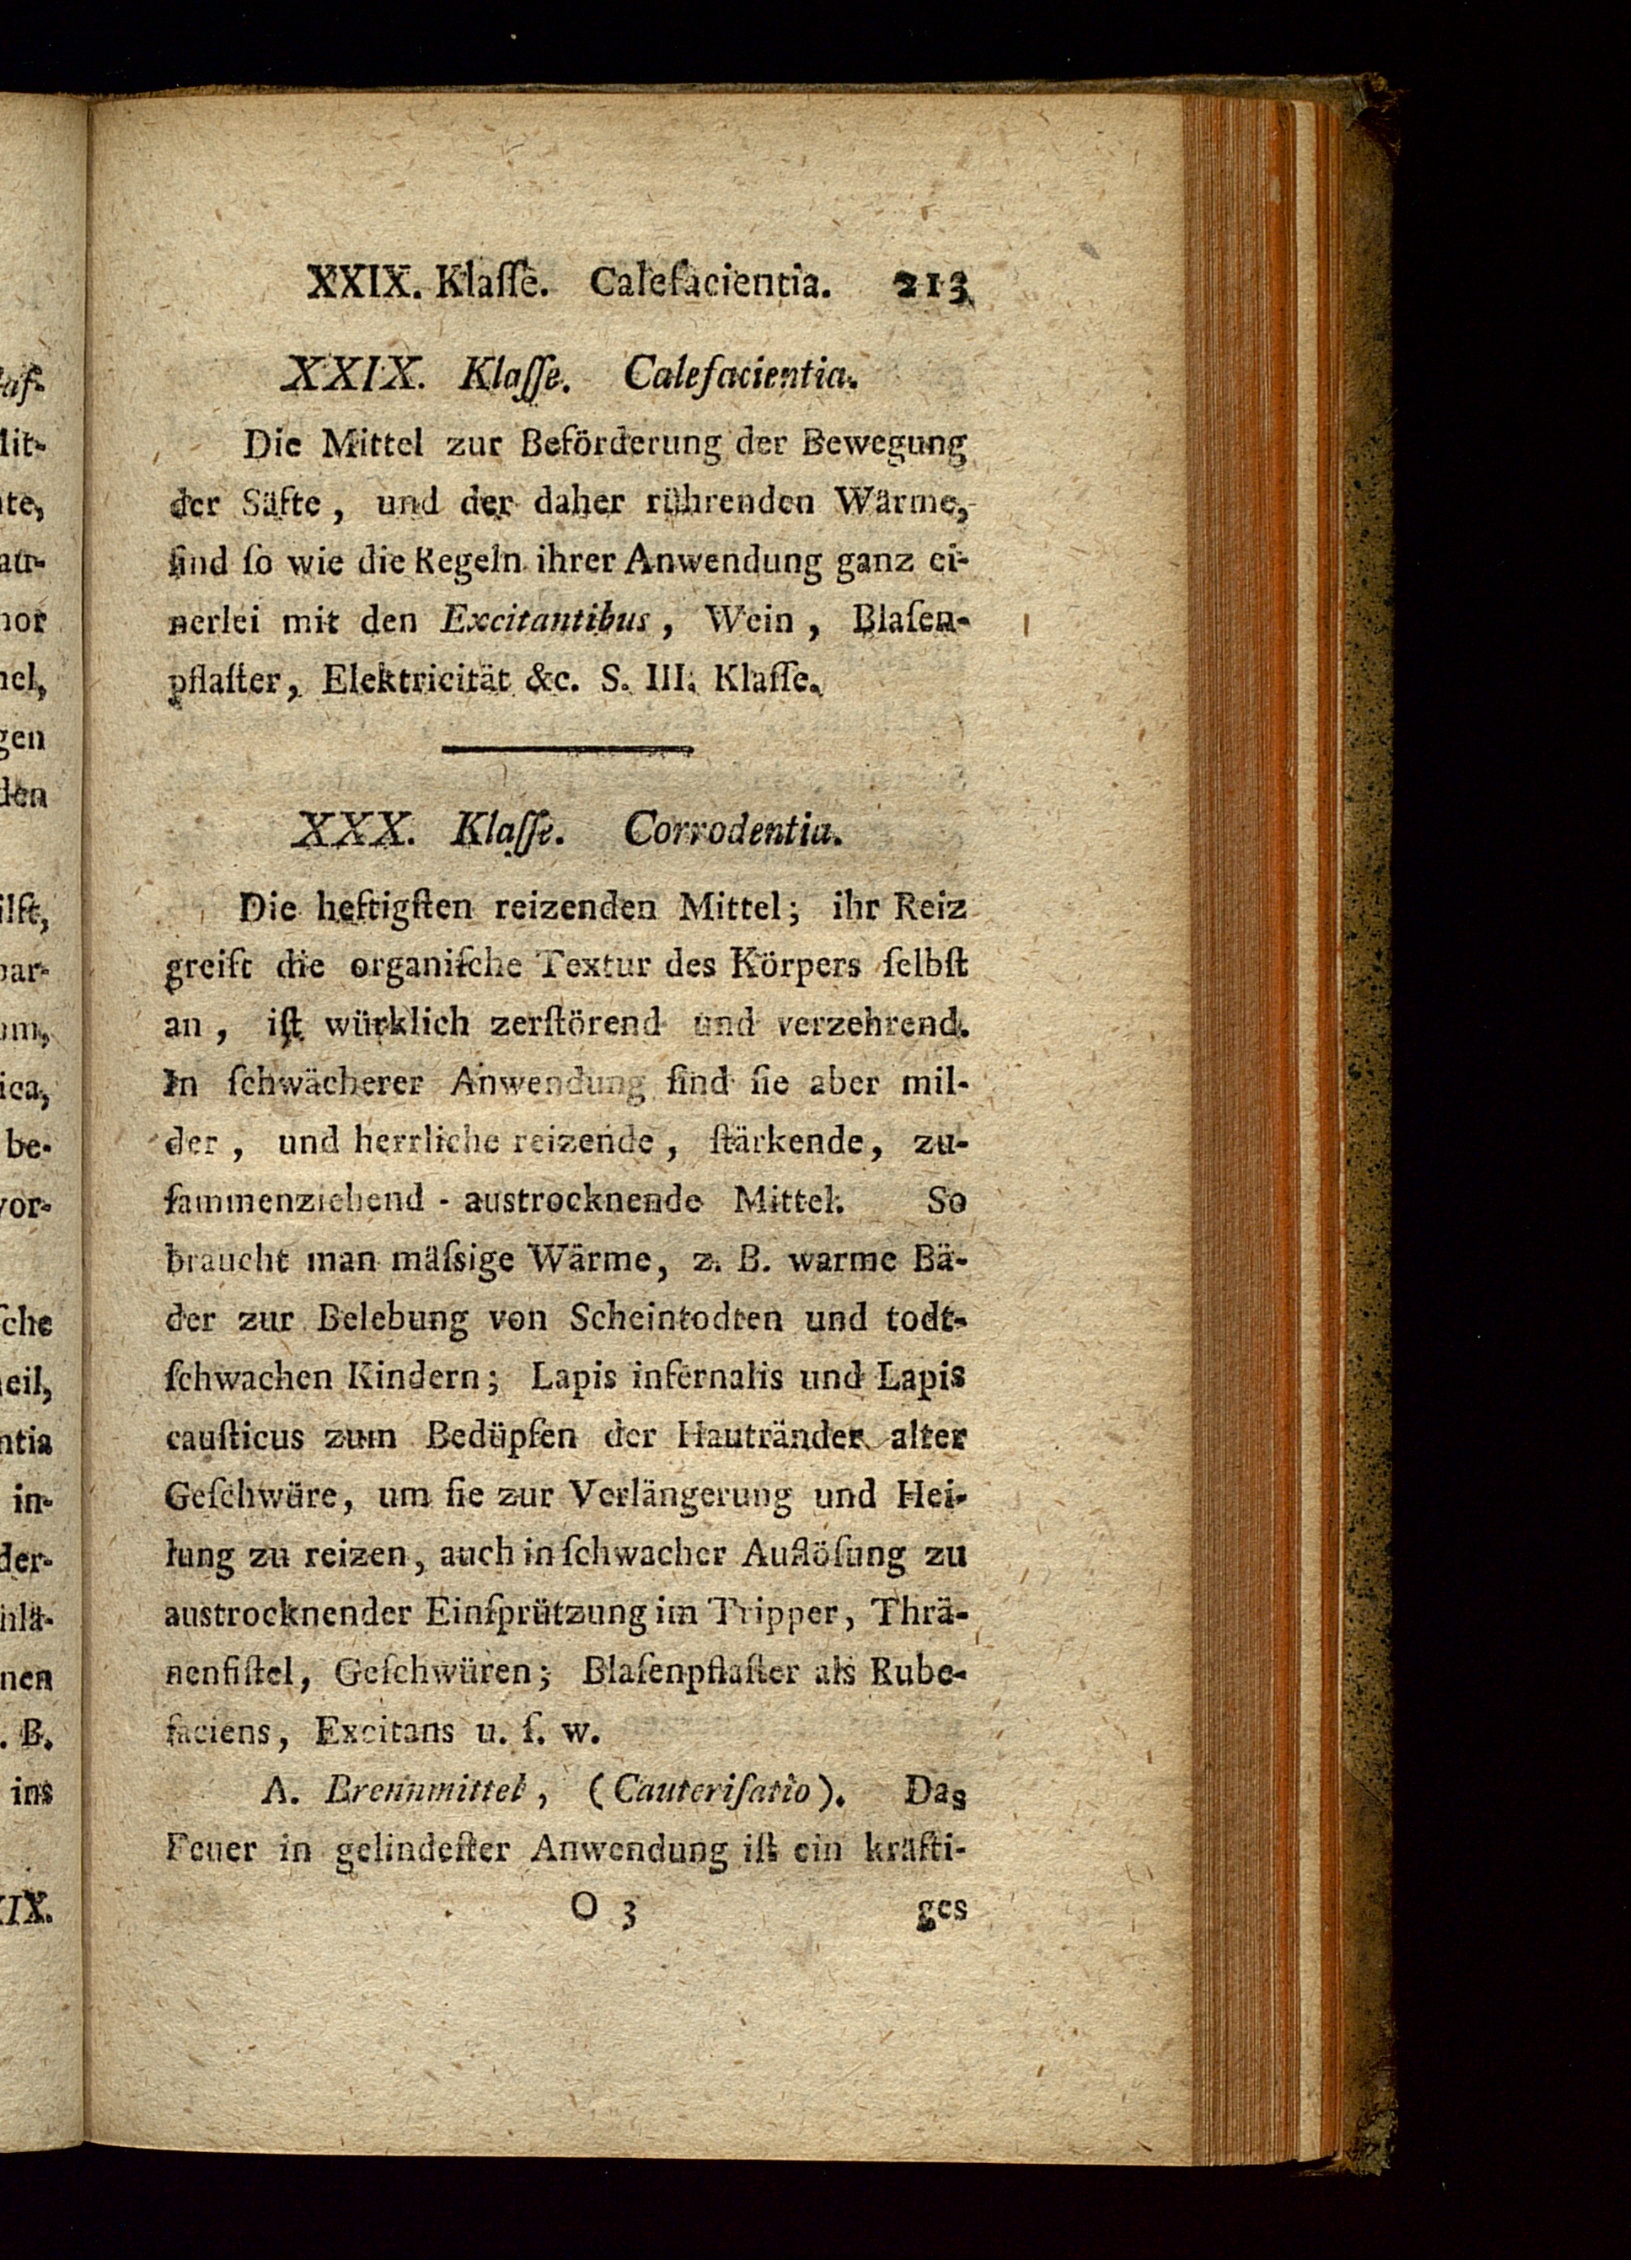 XXIX. Klaſſe. Calefacientia. 213
XXIX. Klaſſe. Calefacientia.
Die Mittel zur Beförderung der Bewegung
der Säfte, und der daher rührenden Wärme,
ſind ſo wie die Regeln ihrer Anwendung ganz ei-
nerlei mit den Excitantibus, Wein, Blaſen-
pflaſter, Elektricität &c. S. III. Klaſſe.
XXX. Klaſſe. Corrodentia.
Die heftigſten reizenden Mittel; ihr Reiz
greift die organiſche Textur des Körpers ſelbſt
an, iſt würklich zerſtörend und verzehrend.
In ſchwächerer Anwendung ſind ſie aber mil-
der, und herrliche reizende, ſtärkende, zu-
ſammenziehend - austrocknende Mittel. So
braucht man mäſsige Wärme, z. B. warme Bä-
der zur Belebung von Scheintodten und todt-
ſchwachen Kindern; Lapis infernalis und Lapis
cauſticus zum Bedüpfen der Hautränder alter
Geſchwüre, um ſie zur Verlängerung und Hei-
lung zu reizen, auch in ſchwacher Auflöſung zu
austrocknender Einſprützung im Tripper, Thrä-
nenfiſtel, Geſchwüren; Blaſenpflaſter als Rube-
faciens, Excitans u. ſ. w.
A. Brennmittel, (Cauteriſatio). Das
Feuer in gelindeſter Anwendung iſt ein kräfti-
O 3 ges